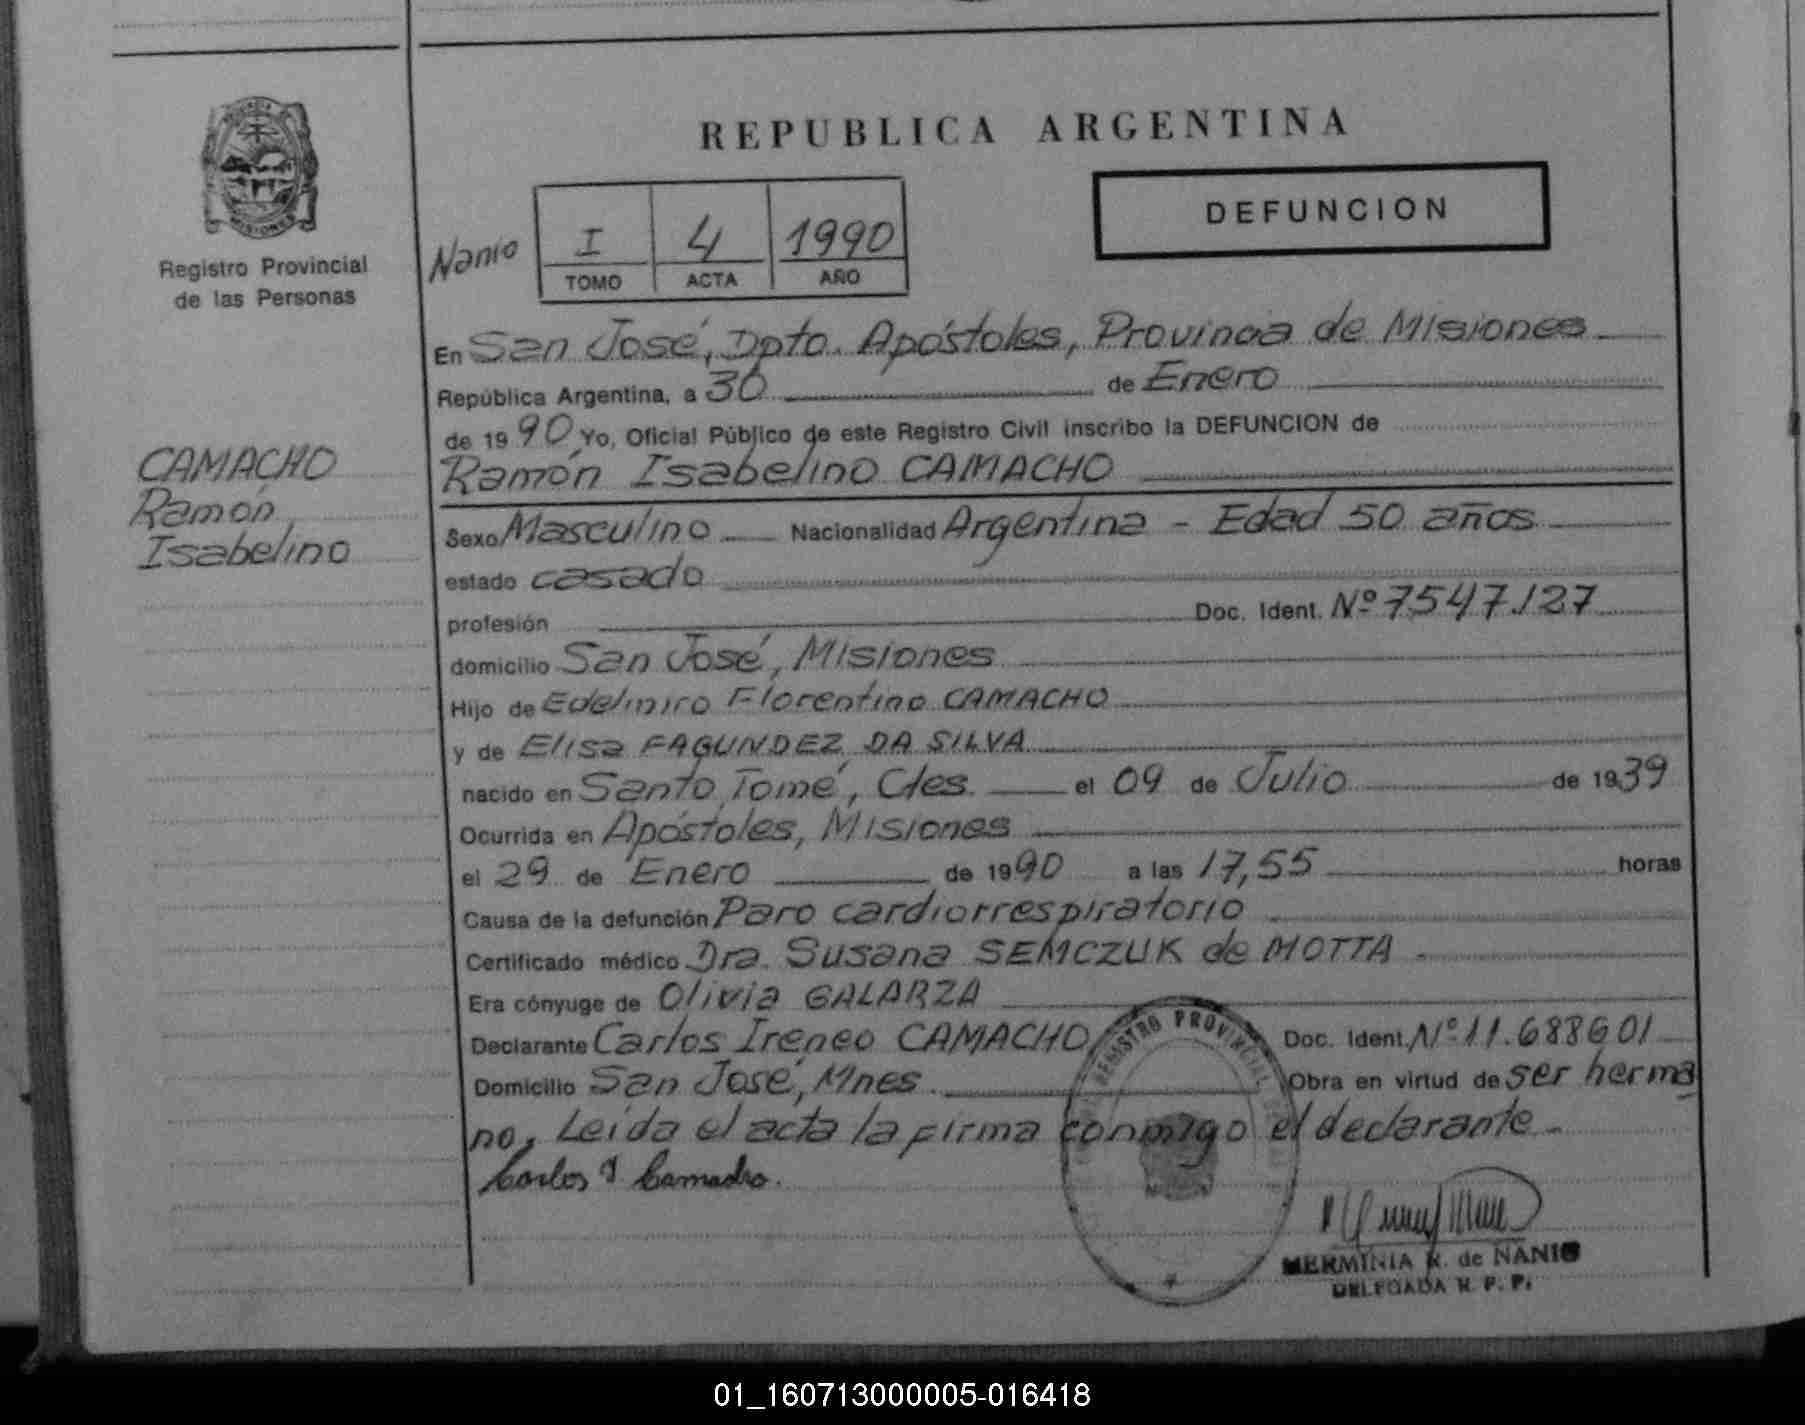 REPUBLICA ARGENTINA
DEFUNCION
PROVINCIA
MISIONES
Registro Provincial
de las Personas
Nanio
I 4 1990
TOMO ACTA AÑO
En San José, Dpto. Apóstoles, Provincia de Misiones
República Argentina, a 30 de Enero
de 1990 Yo, Oficial Público de este Registro Civil inscribo la DEFUNCION de
Ramón Isabelino CAMACHO
CAMACHO
Ramón
Isabelino
Sexo Masculino Nacionalidad Argentina - Edad 50 años
estado casado
profesión Doc. Ident. Nº 7547127
domicilio San José, Misiones
Hijo de Edelmiro Florentino CAMACHO
y de Elisa FAGUNDEZ DA SILVA
nacido en Santo Tomé, Ctes. el 09 de Julio de 1939
Ocurrida en Apóstoles, Misiones
el 29 de Enero de 1990 a las 17,55 horas
Causa de la defunción Paro cardiorrespiratorio
Certificado médico Dra. Susana SEMCZUK de MOTTA
Era cónyuge de Olivia GALARZA
Declarante Carlos Ireneo CAMACHO Doc. Ident. Nº 11.688601
Domicilio San José, Mnes Obra en virtud de ser herma
no, Leída el acta la firma conmigo el declarante
Carlos I. Camacho.
REGISTRO PROVINCIAL
HERMINIA R. de NANIO
DELEGADA R. P. P.
01_160713000005-016418